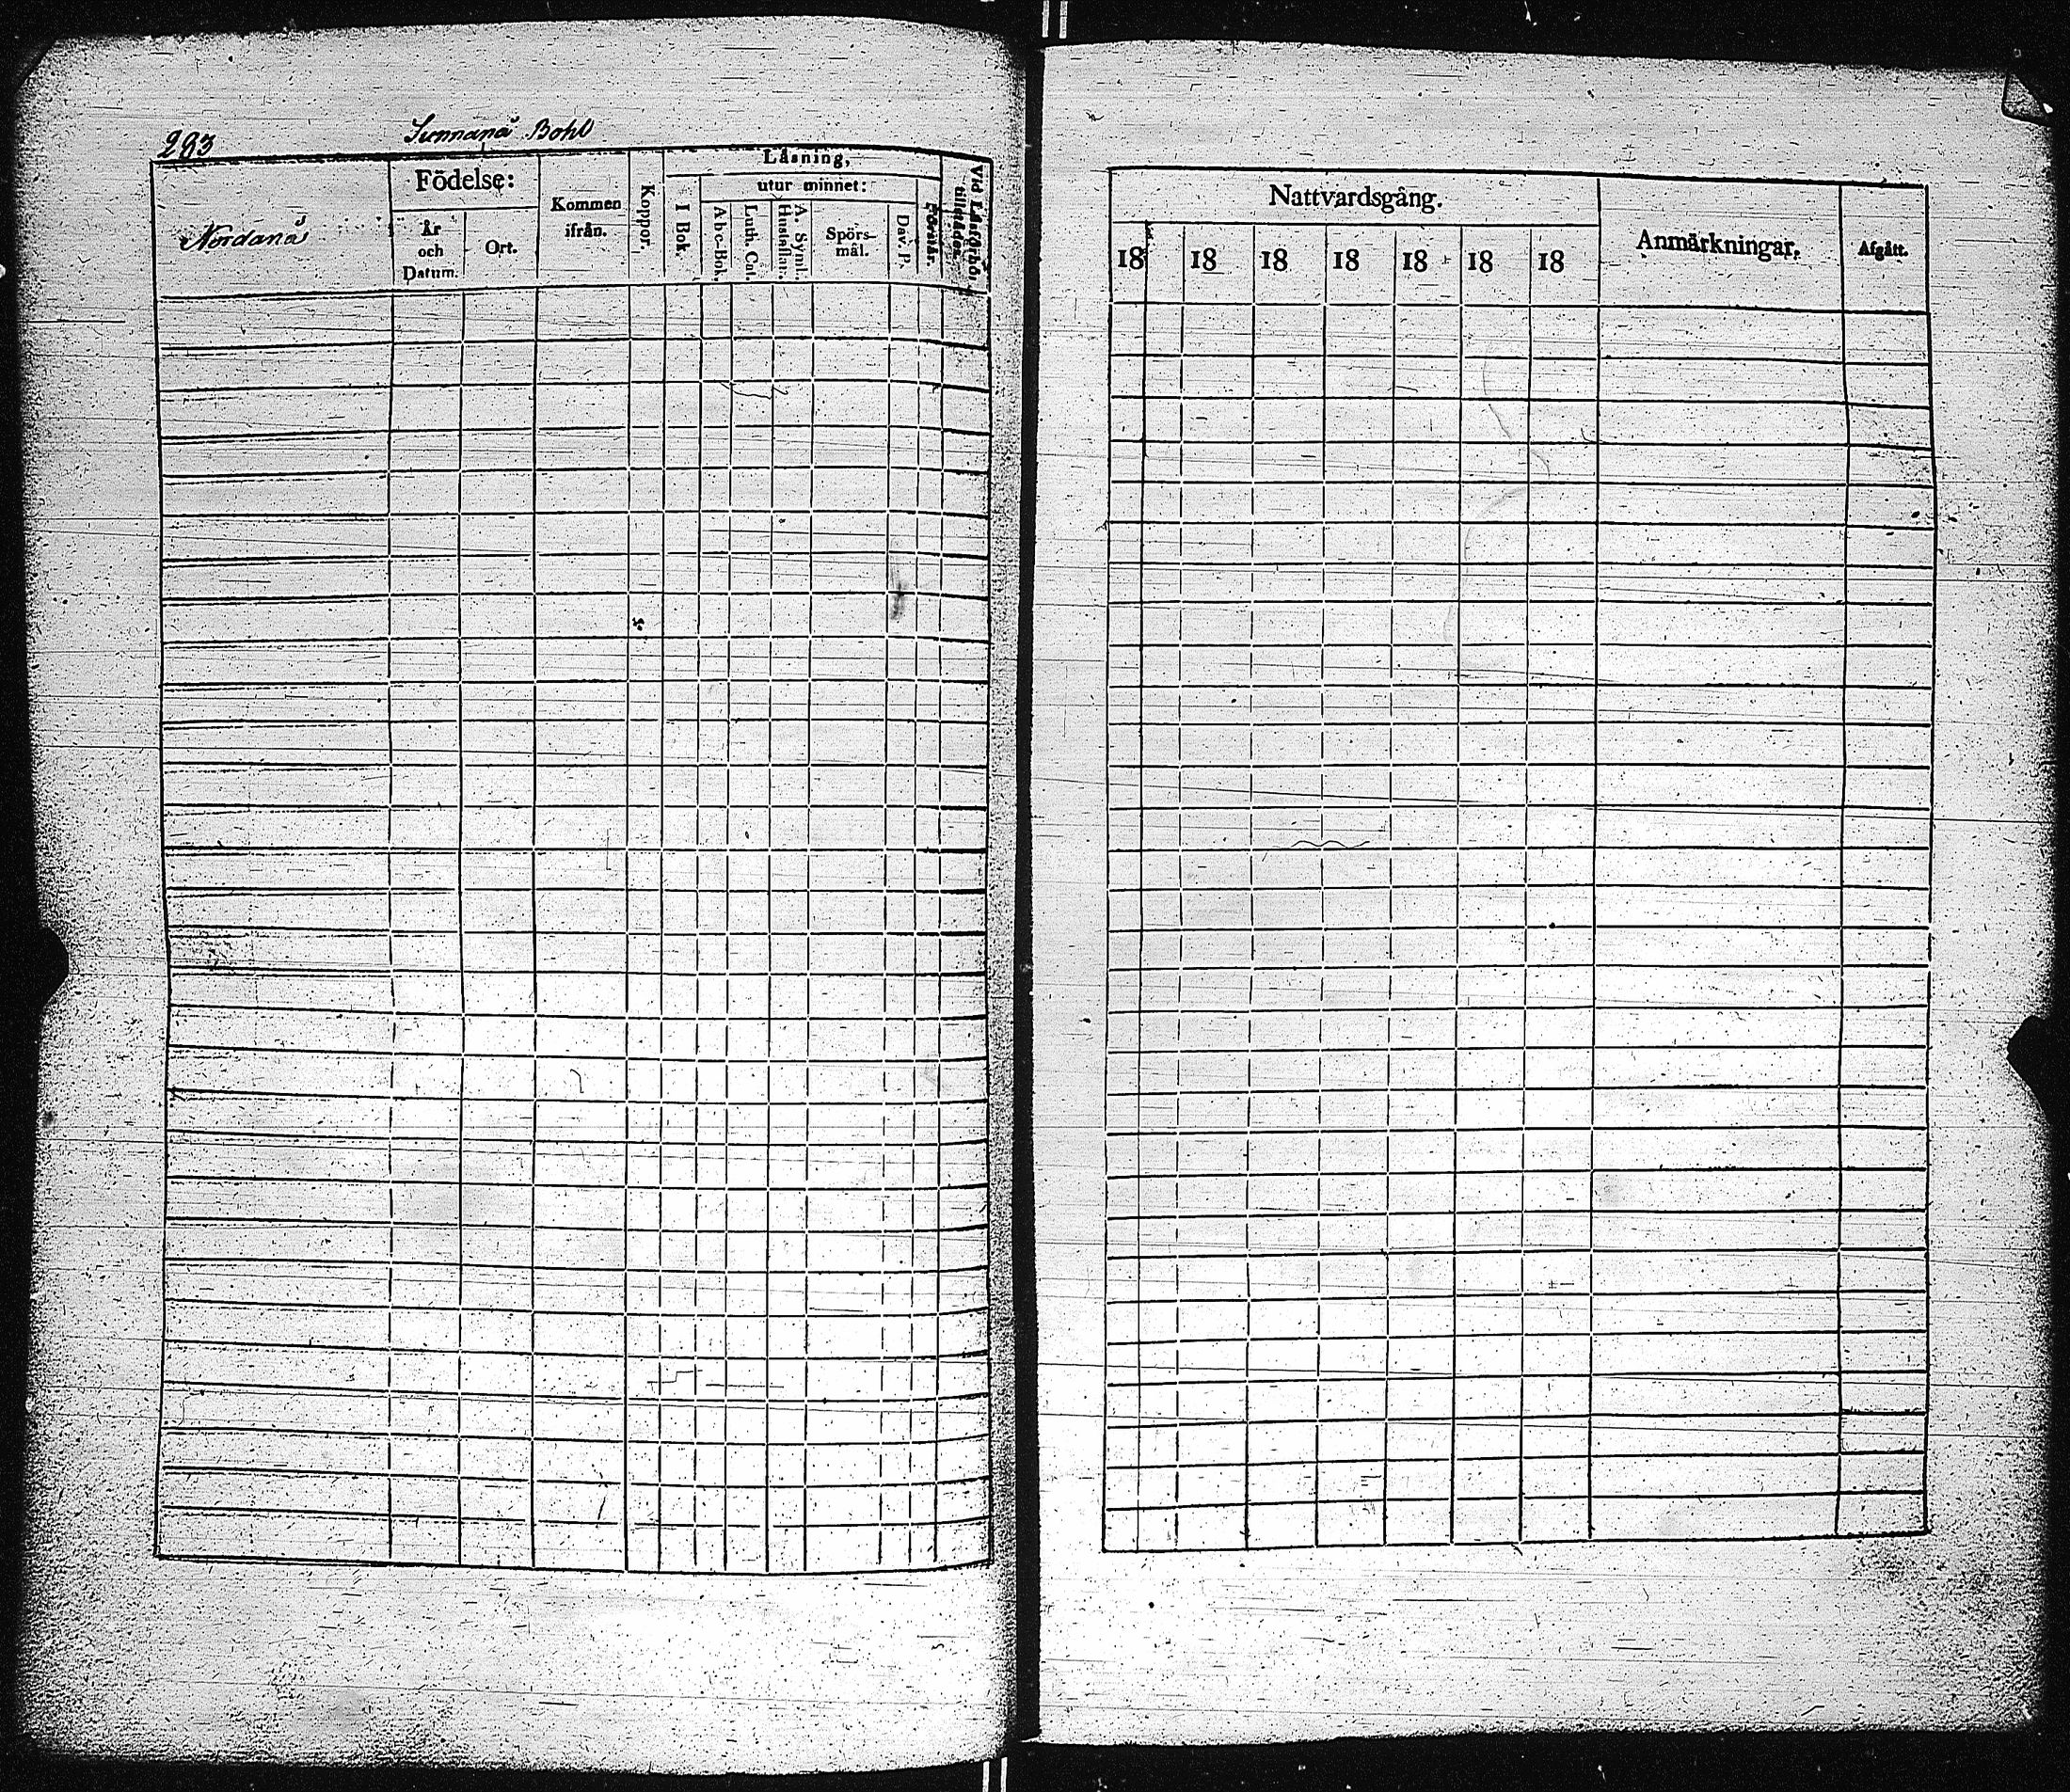 293 Sunnanå Bohl
Nordanå
Födelse:
År och Datum.
Ort.
Kommen ifrån.
Koppor.
Läsning,
I Bok.
utur minnet:
Abc-Bok.
Luth. Cat.
A. Symb. Hustaflan.
Spörsmål.
Dav. P.
Förstår.
Vid Läsförhör tillstädes.
Nattvardsgång.
18 18 18 18 18 18 18
Anmärkningar.
Afgått.